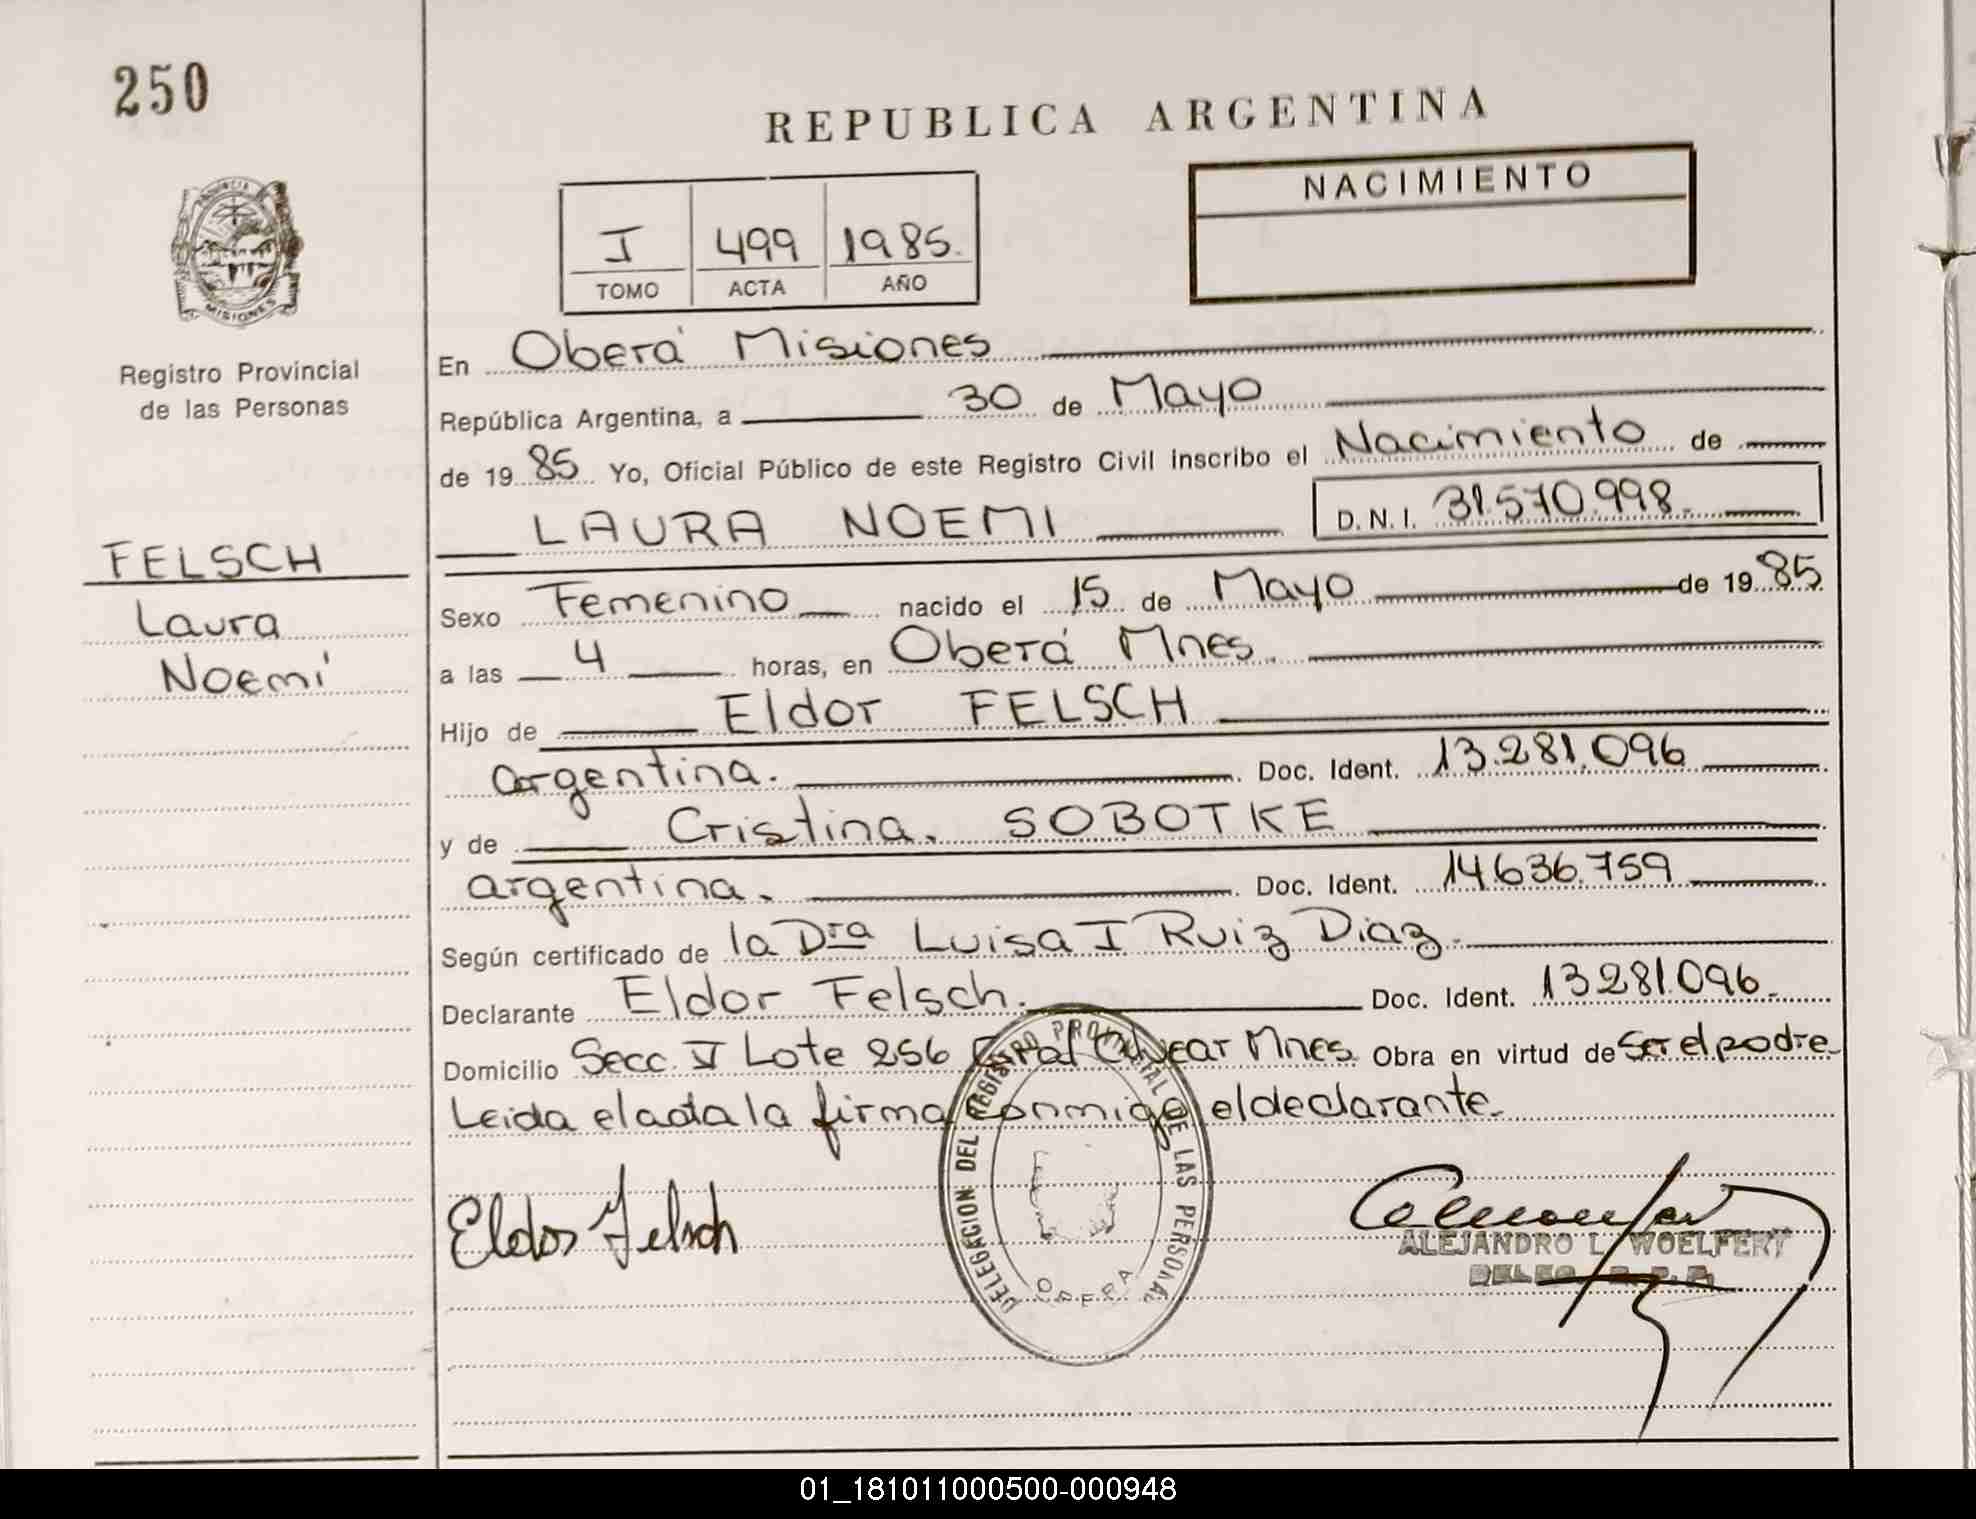 250
REPUBLICA ARGENTINA
NACIMIENTO
I 499 1985.
TOMO ACTA AÑO
PROVINCIA
MISIONES
Registro Provincial
de las Personas
FELSCH
Laura
Noemí
En Oberá Misiones
República Argentina, a 30 de Mayo
de 19 85 Yo, Oficial Público de este Registro Civil inscribo el Nacimiento de
LAURA NOEMI D.N.I. 31.570.998
Sexo Femenino nacido el 15 de Mayo de 19 85
a las 4 horas, en Oberá Mnes.
Hijo de Eldor FELSCH
argentina. Doc. Ident. 13.281.096
y de Cristina. SOBOTKE
argentina. Doc. Ident. 14.636.759
Según certificado de la Dra Luisa I Ruiz Diaz.
Declarante Eldor Felsch. Doc. Ident. 13281.096.
Domicilio Secc. V Lote 256 Gral Alvear Mnes. Obra en virtud de Ser el padre
Leida el acta la firma conmigo el declarante.
DELEGACION DEL REGISTRO PROVINCIAL DE LAS PERSONAS
OBERA
Eldor Felsch
ALEJANDRO L. WOELFERT
01_181011000500-000948